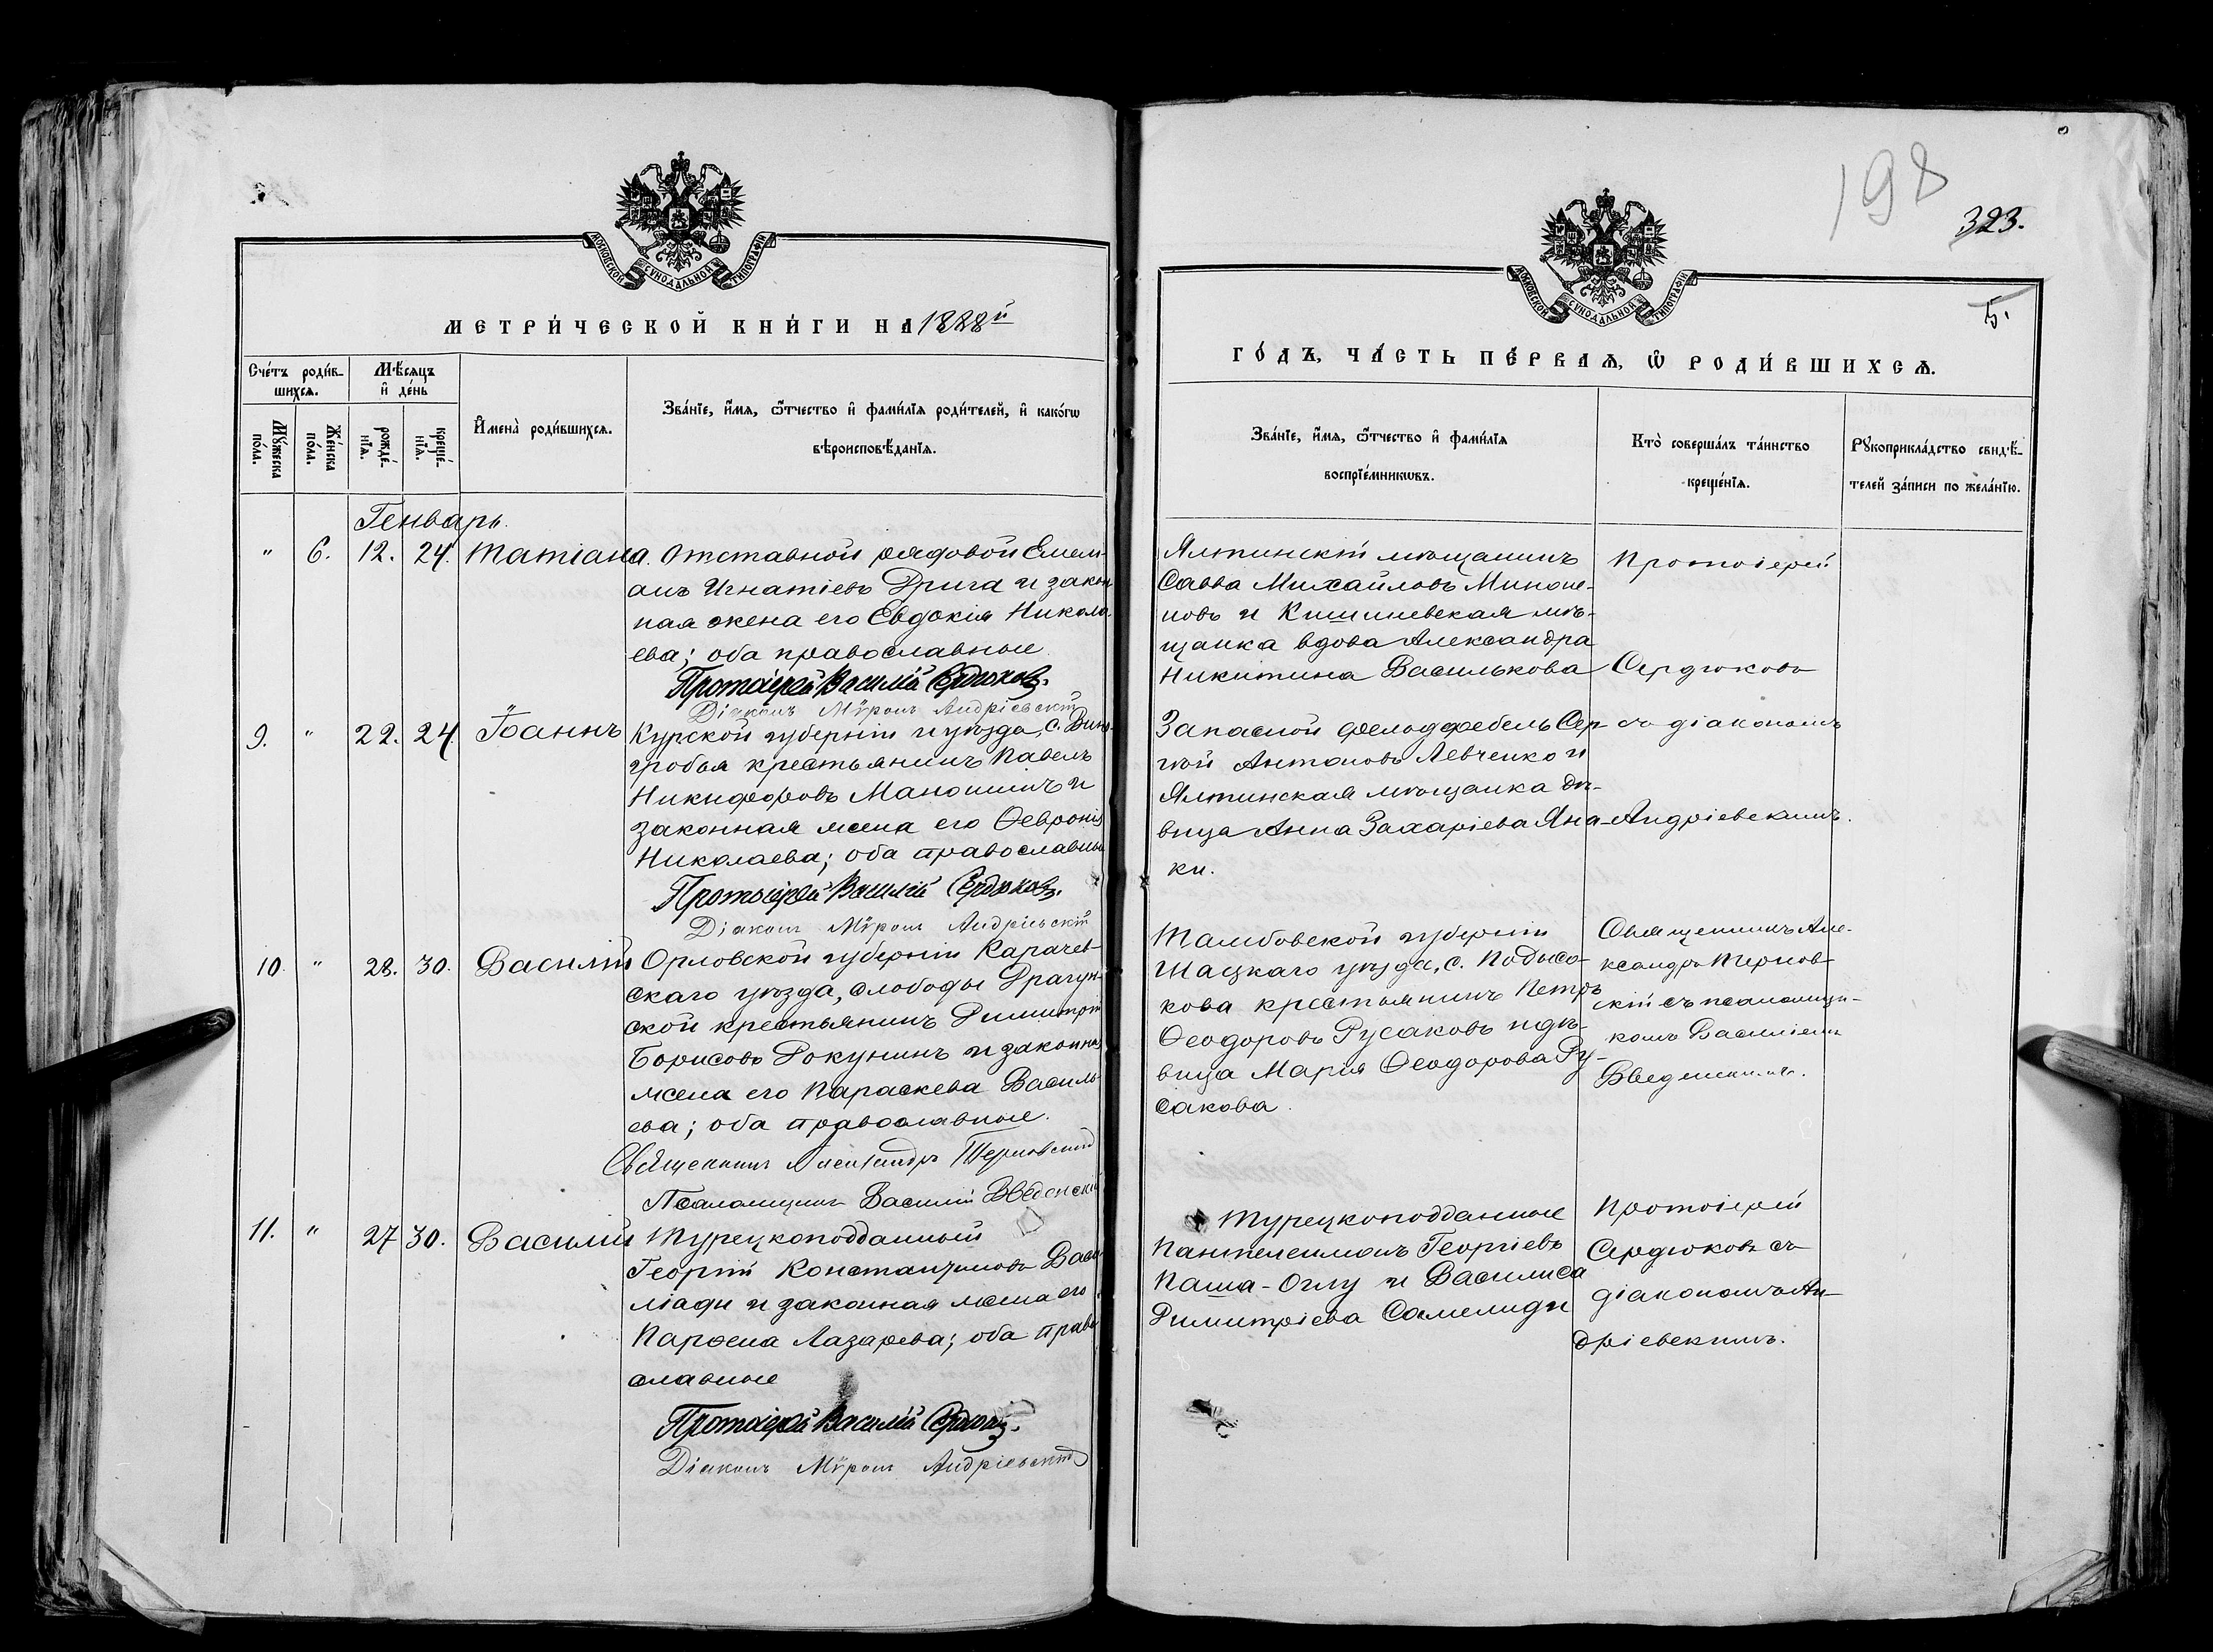 МОСКОВСКОЙ СѴНОДАЛЬНОЙ ТИПОГРАФІИ
МЕТРИ́ЧЕСКОЙ КНИ́ГИ НА 1888й
Сче́тъ роди́в-
шихсѧ.
Мѣ́сѧцъ
и҆ де́нь
Мꙋ́жеска
по́ла.
Же́нска
по́ла.
рожде́-
нїѧ.
креще́-
нїѧ.
И҆мена̀ роди́вшихсѧ.
Зва́нїе, и҆́мѧ, ѻ҆́тчество и҆ фами́лїѧ роди́телей, и҆ како́гѡ
вѣроисповѣ́данїѧ.
Генварь.
" 6. 12. 24. Татіана. Отставной рядовой Емель-
анъ Игнатіевъ Дрига и закон
ная жена его Евдокія Никола-
ева; оба православные
Протоіерей Василій Сердюковъ.
Діаконъ Мѵронъ Андріевскій
9. " 22. 24. Іоаннъ Курской губерніи и уѣзда, с. Вино-
гробья крестьянинъ Павелъ
Никифоровъ Маношинъ и
законная жена его Ѳевронія
Николаева; оба православны
Протоіерей Василій Сердюковъ.
Діаконъ Мѵронъ Андріевскій
10. " 28. 30. Василій Орловской губерніи Карачев-
скаго уѣзда, слободы Драгун-
ской крестьянинъ Димитрій
Борисовъ Рокунинъ и законна
жена его Параскева Василь-
ева; оба православные.
Священникъ Александръ Терновский
Псаломщикъ Василій Введенскій
11. " 27 30. Василій Турецкоподданный
Георгій Константиновъ Васи
ліади и законная жена его
Парѳена Лазарева; оба право
славные
Протоіерей Василій Сердюковъ.
Діаконъ Мѵронъ Андріевскій
198
323.
МОСКОВСКОЙ СѴНОДАЛЬНОЙ ТИПОГРАФІИ
5.
ГО́ДЪ, ЧА́СТЬ ПЕ́РВАѦ, Ѡ҆ РОДИ́ВШИХСѦ.
Зва́нїе, и҆́мѧ, ѻ҆́тчество и҆ фами́лїѧ
воспрїе́мникѡвъ.
Кто̀ соверша́лъ та́инство
креще́нїѧ.
Рꙋкоприкла́дство свидѣ́-
телей за́писи по жела́нїю.
Ялтинскій мѣщанинъ
Савва Михайловъ Миноне-
новъ и Кишиневская мѣ-
щанка вдова Александра
Никитина Василькова
Протоіерей
Сердюковъ
Запасной фельдфебель Сер-
гѣй Антоновъ Левченко и
Ялтинская мѣщанка дѣ-
вица Анна Захаріева Яна-
ки.
съ діакономъ
Андріевскимъ.
Тамбовской губерніи
Шацкаго уѣзда, с. Подысо-
кова крестьянинъ Петръ
Ѳеодоровъ Русаковъ и дѣ-
вица Марія Ѳеодорова Ру-
сакова.
Священникъ Але-
ксандръ Тернов-
скій съ псаломщи-
комъ Василіемъ
Введенскимъ.
Турецкоподданные
Пантелеимонъ Георгіевъ
Паша-Оглу и Василиса
Димитріева Самелиди
Протоіерей
Сердюковъ съ
діакономъ Ан-
дріевскимъ.